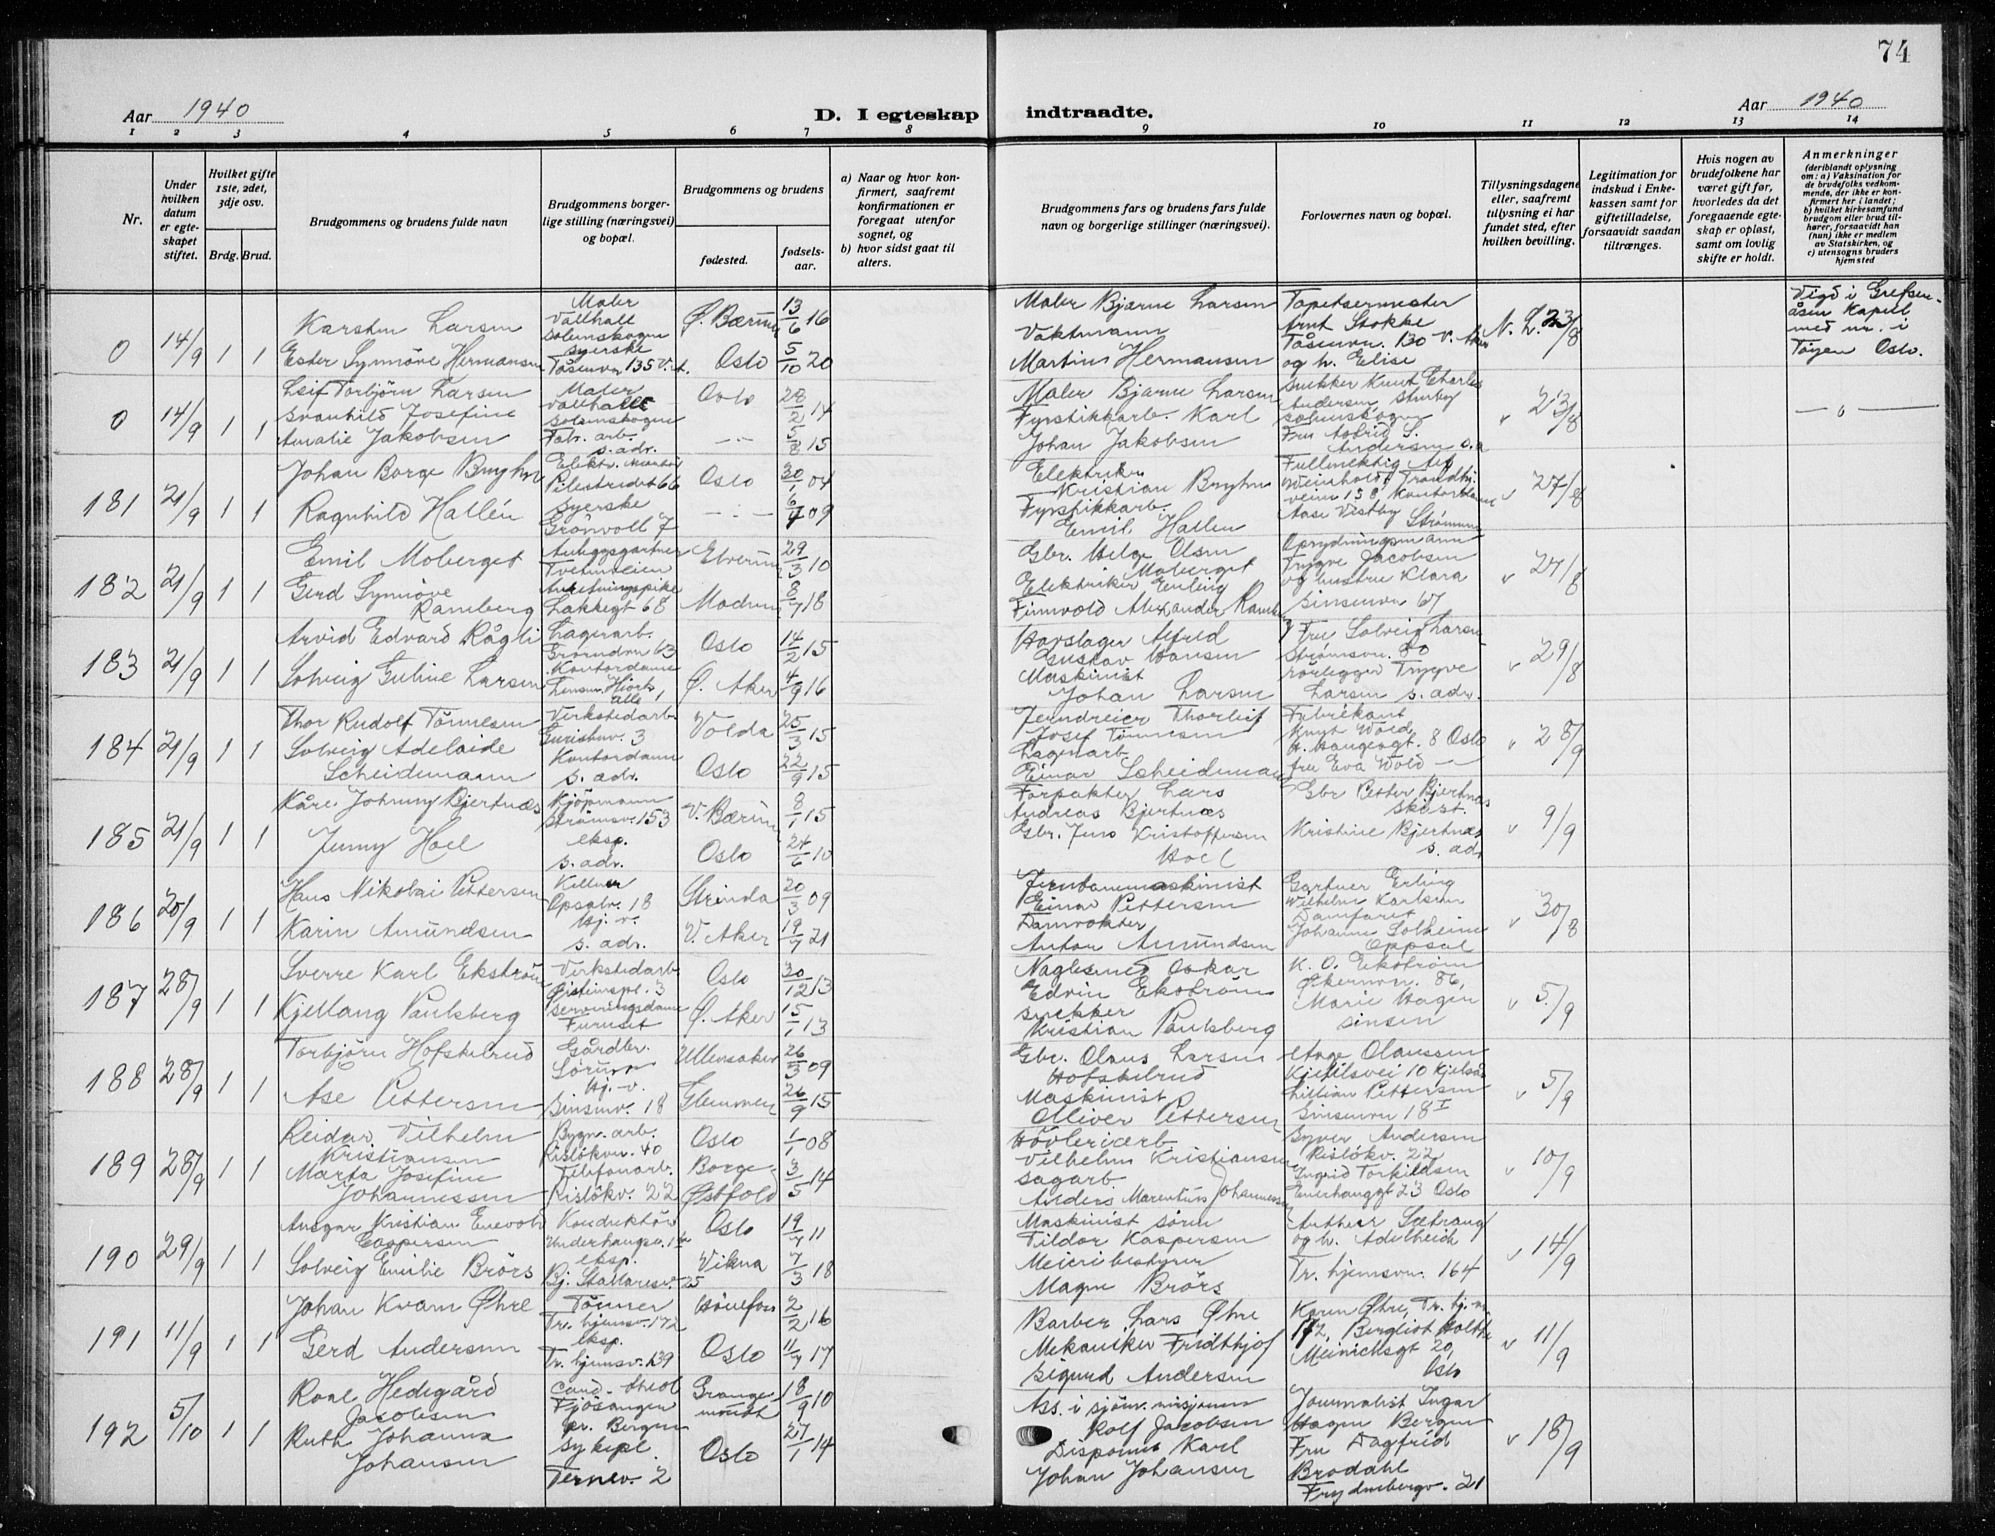 74
Aar 1940
D. I egteskap indtraadte.
Aar 1940
1 2 3 4 5 6 7 8 9 10 11 12 13 14
Nr.
Under hvilken datum er egteskapet stiftet.
Hvilket gifte 1ste, 2det, 3dje osv.
Brdg. Brud.
Brudgommens og brudens fulde navn
Brudgommens borgerlige stilling (næringsvei) og bopæl.
Brudgommens og brudens
fødested.
fødselsaar.
a) Naar og hvor konfirmert, saafremt konfirmationen er foregaat utenfor sognet, og
b) hvor sidst gaat til alters.
Brudgommens fars og brudens fars fulde navn og borgerlige stillinger (næringsvei).
Forlovernes navn og bopæl.
Tillysningsdagene eller, saafremt tillysning ei har fundet sted, efter hvilken bevilling.
Legitimation for indskud i Enkekassen samt for giftetilladelse, forsaavidt saadan tiltrænges.
Hvis nogen av brudefolkene har været gift før, hvorledes da det foregaaende egteskap er opløst, samt om lovlig skifte er holdt.
Anmerkninger
(deriblandt oplysning om: a) Vaksination for de brudefolks vedkommende, der ikke er konfirmert her i landet;
b) hvilket kirkesamfund brudgom eller brud tilhører, forsaavidt han (hun) ikke er medlem av Statskirken, og
c) utensogns bruders hjemsted
0 14/9 1 1
Karsten Larsen
Ester Synnøve Hermansen
Maler
Vallhall
Solemskogen
syerske
Tåsenvn 135 V.A.
Ø. Bærum 13/6 16
Oslo 5/10 20
Maler Bjarne Larsen
Vaktmann
Martin Hermansen
Tapetsermester
Arnt Stokke
Tåsenvn. 130 V. Aker
og h. Elise
N. L. 23/8
Vigd i Grefsenåsen Kapell
med nr. i
Tøyen Oslo.
0 14/9 1 1
Leif Torbjörn Larsen
Svanhild Josefine
Amalie Jakobsen
Maler
Vallhall
Solemskogen
Fabr. arb.
s. adr.
Oslo 28/2 14
— " — 5/8 15
Maler Bjarne Larsen
Fyrstikkarb. Karl
Johan Jakobsen
Snekker Knut Charles
Andersen
Solemskogen
Fru Astrid S.
Andersen s.a
" 23/8
— " —
181 21/9 1 1
Johan Borge Bruyhn
Ragnhild Hallén
Elektr. montör
Pilestredet 66
Syerske
Grönvoll 7
Oslo 30/1 04
— " — 6/7 09
Elektriker
Kristian Bruyhn
Fyrstikkarb.
Emil Hallen
Fullmektig Alf
Weinholdt Trondhj.
veien 138, Kontordame
Aase Vistby
" 27/8
182 21/9 1 1
Emil Moberget
Gerd Synnöve
Ramberg
Anleggsgartner
Tvetenveien
Lakkegt 68
Elverum 29/3 10
Modum 8/7 18
Gbr. Helge Olsen
Moberget
Elektriker Erling
Finnvold Alexander Ramberg
Opsydningsmann
Trygve Jacobsen
og hustru Klara
Sinsenvn 67
" 27/8
183 21/9 1 1
Arvid Edvard Rågli
Solveig Guline Larsen
Lagerarb.
Grorudvn 63
Kontordame
alle 1
Oslo 14/2 15
Ø. Aker 4/9 16
Hovslager Alfred
Gustav Hansen
Maskinist
Johan Larsen
Fru Solveig Larsen
Strömsvn. 80
rörlegger Trygve
Larsen s. adr.
" 29/8
184 21/9 1 1
Thor Rudolf Tönnesen
Solveig Adelaide
Scheidemann
Verkstedarb
3
Kontordame
s. adr.
Volda 25/3 15
Oslo 22/9 15
Jerndreier Thorleif
Josef Tönnesen
Lagerarb.
Einar Scheidemann
Fabrikant
Knut Wold
H. Haugesgt. 8 Oslo
fru Eva Wold — " —
" 28/9
185 21/9 1 1
Kåre Johnny Bjertnæs
Jenny Hoel
Kjöpmann
Strömsv. 153
eksp.
s. adr.
V. Bærum 8/1 15
Oslo 24/6 10
Forpakter Lars
Andreas Bjertnæs
Gbr. Jens Kristoffersen
Hoel
Gbr Petter Bjertnæs
Ski st.
Kristine Bjertnæs
s. adr
" 9/9
186 20/9 1 1
Hans Nikolai Pettersen
Karin Amundsen
Kellner
Opsalv. 18
Hj. v.
s. adr.
Strinda 20/3 09
V. Aker 19/7 21
Jernbanemaskinist
Einar Pettersen
Damvokter
Anton Amundsen
Gartner Erling
Wilhelm Karlsen
Johanne Solheim
Oppsal
" 30/8
187 28/9 1 1
Sverre Karl Ekström
Kjellaug Paulsberg
Verkstedarb.
Öisteinspl. 3
Serveringsdame
Furuset
Oslo 30/12 13
Ø. Aker 15/1 13
Naglesmed Oskar
Edvin Ekström
Snekker
Kristian Paulsberg
K. O. Ekström
Økernvn. 86,
Marie Hagen
Sinsen
" 5/9
188 28/9 1 1
Torbjörn Hofskelrud
Åse Pettersen
Gårdbr.
Sörum
Hj. v.
Sinsenv. 18
Ullensaker 26/3 09
Glemmen 26/9 15
Gbr. Olaus Larsen
Hofskelrud
Maskinist
Olliver Pettersen
Aage Olaussen
Kjelsvei 10 Kjelsås
Lillian Pettersen
Sinsenvn 18 I
" 5/9
189 28/9 1 1
Reidar Vilhelm
Kristiansen
Marta Josefine
Johannessen
Bygn. arb.
Risløkvn. 40
Telefonarb.
Risløkv. 22
Oslo 1/1 08
Borge Østfold 3/5 14
Hövleriarb
Vilhelm Kristiansen
Sagarb
Anders Marentius Johannessen
Syver Andersen
Risløkv. 22
Ingrid Torkildsen
Enerhauggt 23 Oslo
" 10/9
190 29/9 1 1
Ansgar Kristian Enevold
Caspersen
Solveig Emilie Brörs
Konduktör
Underhaugsv. 14
eksp.
Bj. Stallaresv. 25
Oslo 19/7 11
Vikna 7/3 18
Maskinist Sören
Tildor Kaspersen
Meieribestyrer
Magne Brörs
Arthur Sætrang
og h. Adelheid
Tr. hjemsvn. 164
" 14/9
191 11/9 1 1
Johan Kvam Øhre
Gerd Andersen
Tömmer
Tr. hjemsv. 172
eksp.
Tr. hjemsv. 139
Hönefoss 2/2 16
Oslo 11/7 17
Barber Lars Øhre
Mekaniker Fridthjof
Sigurd Andersen
Karen Øhre, Tr. hj. v.
172, Bergliot Holthe
Meinichsgt 20,
Oslo
" 11/9
192 5/10 1 1
Roal Hedegård
Jacobsen
Ruth Johanna
Johansen
cand. theol
Fjösanger
pr. Bergen
Sykepl.
Ternev. 2
Grangemouth 18/9 10
Oslo 27/1 14
Ass. i sjöm. misjonen
Rolf Jacobsen
Disponent Karl
Johan Johansen
Journalist Ingar
Hagen Bergen
Fru Dagfrid
Brodahl
Frydenbergv. 21
" 18/9